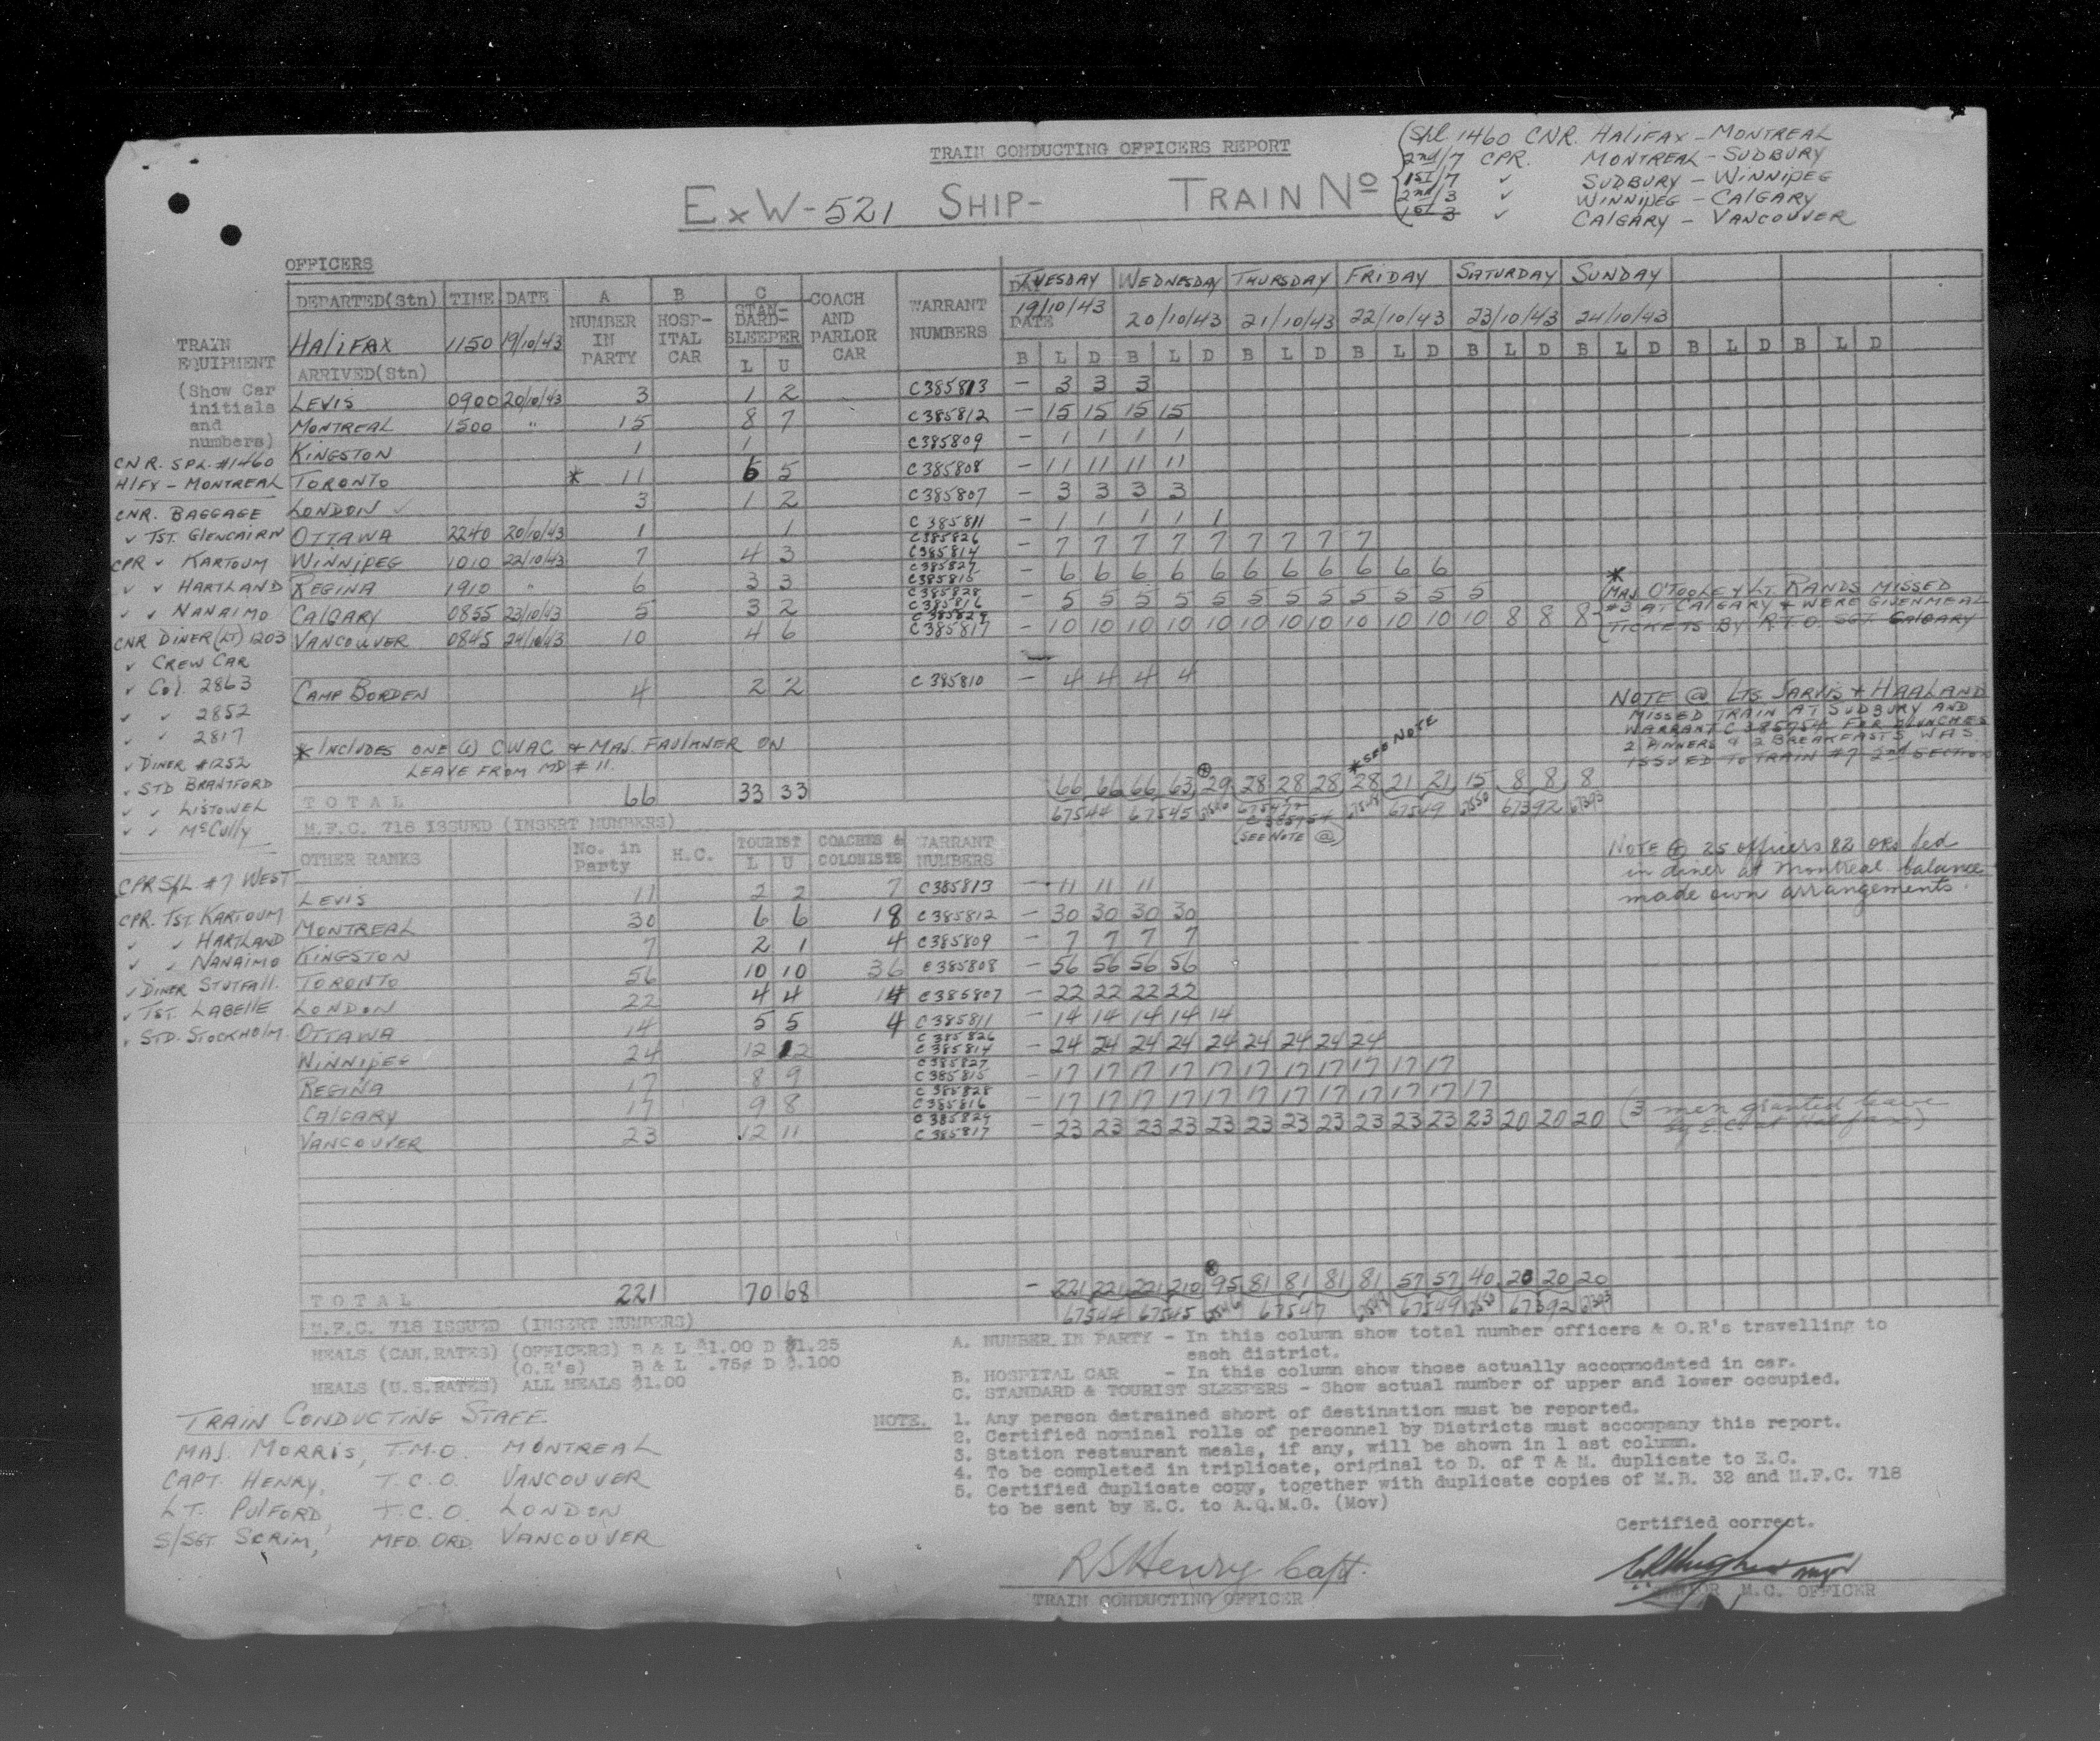 TRAIN CONDUCTING OFFICERS REPORT
ExW-521 SHIP- TRAIN No
Spl 1460 CNR. HALIFAX - MONTREAL
2nd/7 CPR. MONTREAL - SUDBURY
1st/7 ✓ SUDBURY - WINNIPEG
2nd/3 ✓ WINNIPEG - CALGARY
1st 3 ✓ CALGARY - VANCOUVER
OFFICERS
DEPARTED(Stn) TIME DATE A B C COACH AND PARLOR CAR WARRANT NUMBERS TUESDAY WEDNESDAY THURSDAY FRIDAY SATURDAY SUNDAY
NUMBER IN PARTY HOSPITAL CAR STANDARD SLEEPER DATE 19/10/43 20/10/43 21/10/43 22/10/43 23/10/43 24/10/43
HALIFAX 1150 19/10/43
ARRIVED(Stn) L U B L D B L D B L D B L D B L D B L D B L D B L D
LEVIS 0900 20/10/43 3 1 2 C385813 - 3 3 3
MONTREAL 1500 " 15 8 7 C385812 - 15 15 15 15
KINGSTON 1 1 C385809 - 1 1 1 1
TORONTO * 11 6 5 C385808 - 11 11 11 11
LONDON ✓ 3 1 2 C385807 - 3 3 3 3
OTTAWA 2240 20/10/43 1 1 C385811 - 1 1 1 1 1
WINNIPEG 1010 22/10/43 7 4 3 C385826 C385814 - 7 7 7 7 7 7 7 7 7
REGINA 1910 " 6 3 3 C385827 C385815 - 6 6 6 6 6 6 6 6 6 6 6
CALGARY 0855 23/10/43 5 3 2 C385828 C385816 - 5 5 5 5 5 5 5 5 5 5 5 5
VANCOUVER 0845 24/10/43 10 4 6 C385829 C385817 - 10 10 10 10 10 10 10 10 10 10 10 10 8 8 8
CAMP BORDEN 4 2 2 C385810 - 4 4 4 4
* INCLUDES ONE (1) CWAC & MAJ. FAULKNER ON
LEAVE FROM MD #11.
*SEE NOTE
TOTAL 66 33 33 66 66 66 63 29 28 28 28 28 21 21 15 8 8 8
M.F.C. 718 ISSUED (INSERT NUMBERS) 67544 67545 67546 67547 C385754 67548 67549 67550 67392 67393
(SEE NOTE @)
*
MAJ O'TOOLE & LT. RANDS MISSED
#3 AT CALGARY & WERE GIVEN MEAL
TICKETS BY R.T.O. SGT. CALGARY
NOTE @ LTS JARVIS & HAALAND
MISSED TRAIN AT SUDBURY AND
WARRANT C385754 FOR 2 LUNCHES
2 DINNERS & 2 BREAKFASTS WAS
ISSUED TO TRAIN #7 2nd SECTION
NOTE ⊕ 25 officers 82 ORs fed
in diner at Montreal balance
made own arrangements.
OTHER RANKS No. in Party H.C. TOURIST L U COACHES & COLONISTS WARRANT NUMBERS
LEVIS 11 2 2 7 C385813 - 11 11 11
MONTREAL 30 6 6 18 C385812 - 30 30 30 30
KINGSTON 7 2 1 4 C385809 - 7 7 7 7
TORONTO 56 10 10 36 C385808 - 56 56 56 56
LONDON 22 4 4 14 C385807 - 22 22 22 22
OTTAWA 14 5 5 4 C385811 - 14 14 14 14 14
WINNIPEG 24 12 12 C385826 C385814 - 24 24 24 24 24 24 24 24 24
REGINA 17 8 9 C385827 C385815 - 17 17 17 17 17 17 17 17 17 17 17
CALGARY 17 9 8 C385828 C385816 - 17 17 17 17 17 17 17 17 17 17 17 17
VANCOUVER 23 12 11 C385829 C385817 - 23 23 23 23 23 23 23 23 23 23 23 23 20 20 20 (3 men granted leave
TOTAL 221 70 68 - 221 221 221 210 95 81 81 81 81 57 57 40 20 20 20
M.F.C. 718 ISSUED (INSERT NUMBERS) 67544 67545 67546 67547 67548 67549 67550 67392 67393
TRAIN EQUIPMENT
(Show Car initials and numbers)
CNR. SPL. #1460
H/FX - MONTREAL
CNR. BAGGAGE
✓ TST. GLENCAIRN
CPR ✓ KARTOUM
✓ ✓ HARTLAND
✓ ✓ NANAIMO
CNR DINER (LT) 1203
✓ CREW CAR
✓ Col. 2863
✓ ✓ 2852
✓ ✓ 2817
✓ DINER #1252
✓ STD BRANTFORD
✓ ✓ LISTOWEL
✓ ✓ McCully
CPR SPL #7 WEST
CPR. TST KARTOUM
✓ ✓ HARTLAND
✓ ✓ NANAIMO
✓ DINER STUTFALL
✓ TST. LABELLE
✓ STD. STOCKHOLM
MEALS (CAN.RATES) (OFFICERS) B & L $1.00 D $1.25
(O.R's) B & L .75¢ D $.100
MEALS (U.S.RATES) ALL MEALS $1.00
TRAIN CONDUCTING STAFF
MAJ. MORRIS, T.M.O. MONTREAL
CAPT. HENRY, T.C.O. VANCOUVER
LT. PULFORD, T.C.O. LONDON
S/SGT SCRIM, MED. ORD. VANCOUVER
A. NUMBER IN PARTY - In this column show total number officers & O.R's travelling to
each district.
B. HOSPITAL CAR - In this column show those actually accommodated in car.
C. STANDARD & TOURIST SLEEPERS - Show actual number of upper and lower occupied.
NOTE. 1. Any person detrained short of destination must be reported.
2. Certified nominal rolls of personnel by Districts must accompany this report.
3. Station restaurant meals, if any, will be shown in l ast column.
4. To be completed in triplicate, original to D. of T & M. duplicate to E.C.
5. Certified duplicate copy, together with duplicate copies of M.B. 32 and M.F.C. 718
to be sent by E.C. to A.Q.M.G. (Mov)
Certified correct.
RSHenry Capt.
TRAIN CONDUCTING OFFICER
M.C. OFFICER